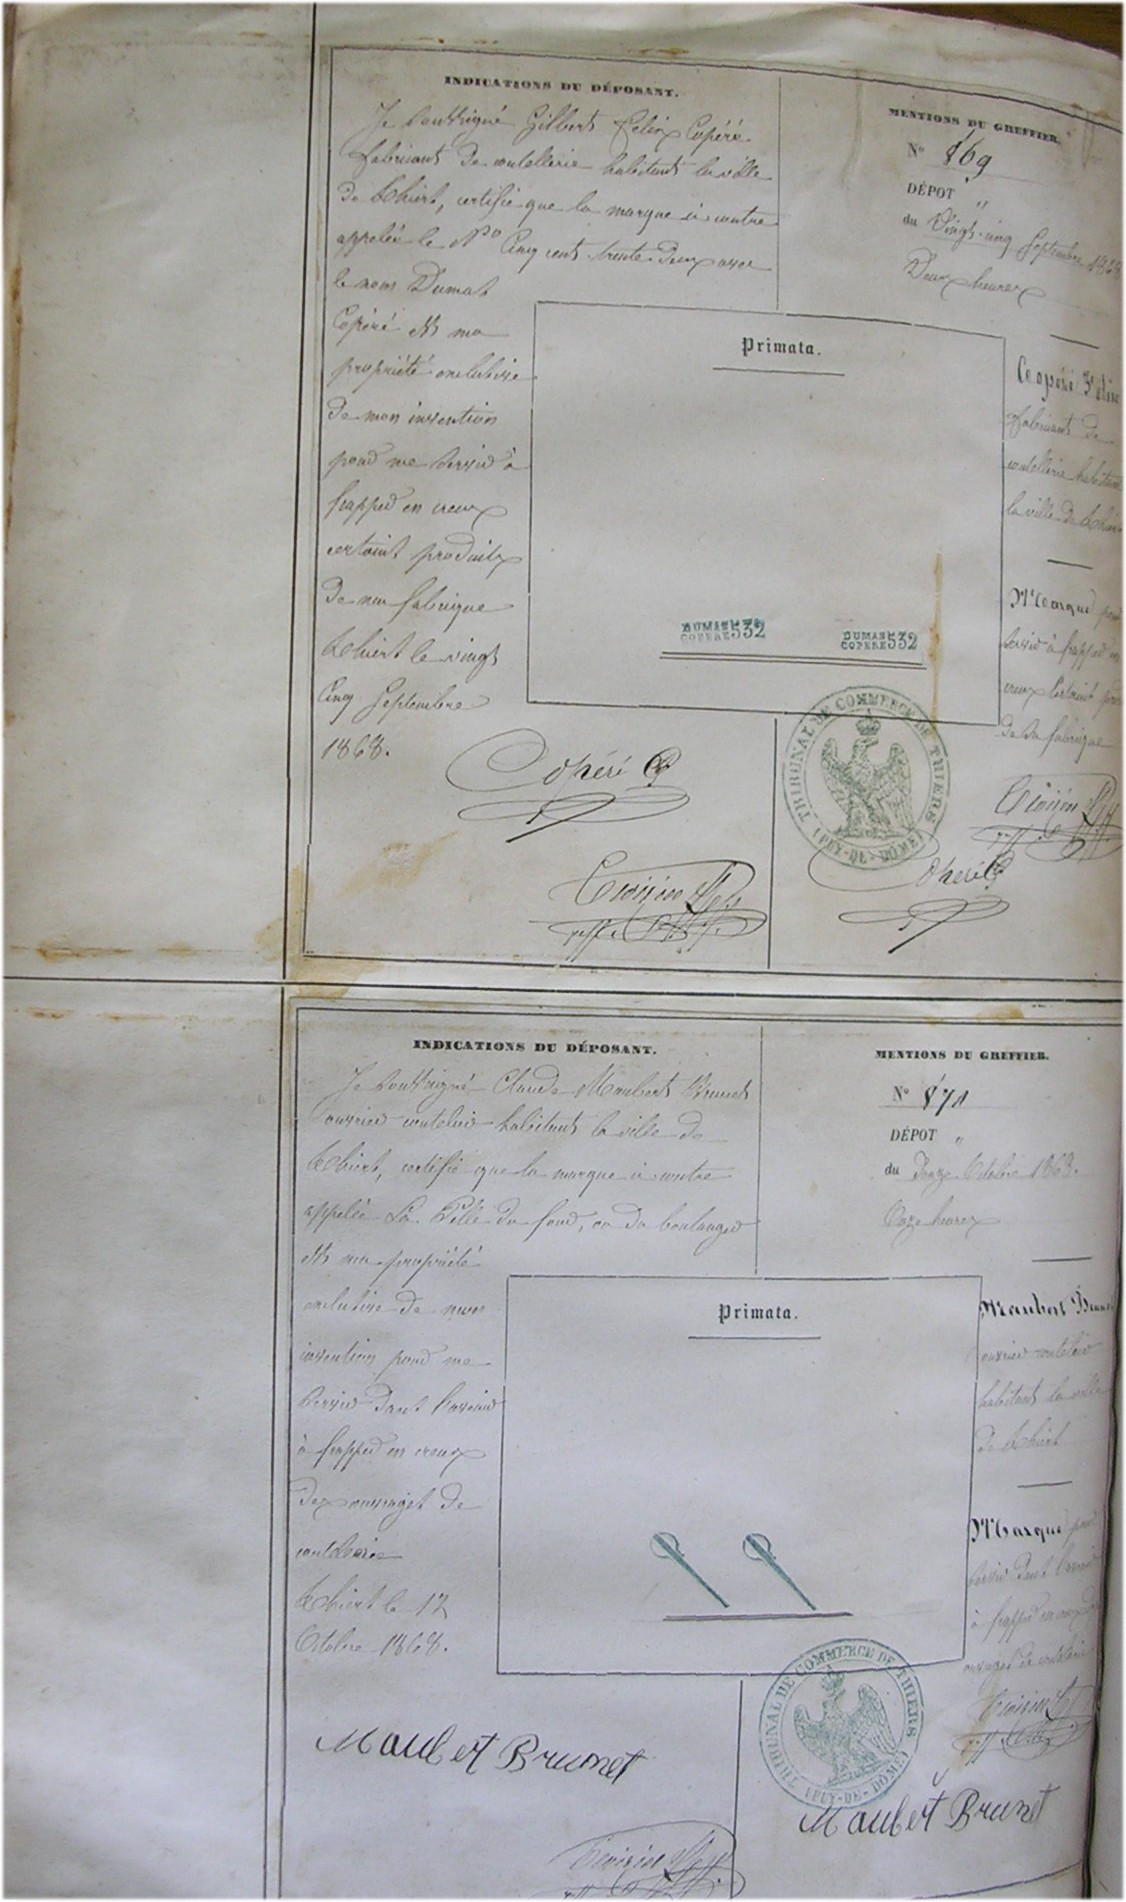 INDICATIONS DU DÉPOSANT.
Je soussigné Gilbert Félix Copéré
fabricant de coutellerie habitant la ville
de Thiers, certifie que la marque ci contre
appelée le No Cinq cent trente Deux avec
le nom Dumas
Copéré est ma
propriété exclusive
de mon invention
pour me servir à
frapper en creux
certains produits
de ma fabrique
Thiers le vingt
Cinq Septembre
1868.
Copéré
MENTIONS DU GREFFIER.
No 869
DÉPOT
du Vingt-cinq Septembre 1868
Deux heures
Primata.
DUMAS 532
COPERE
DUMAS 532
COPERE
Copéré Félix
Fabricant de
coutellerie habitant
la ville de Thiers
Marque pour
servir à frapper en
creux certains
de sa fabrique
TRIBUNAL DE COMMERCE DE THIERS
(PUY-DE-DÔME)
Copéré
INDICATIONS DU DÉPOSANT.
Je soussigné Claude Maubert Brunet
ouvrier coutelier habitant la ville de
Thiers, certifie que la marque ci contre
appelée La Pelle du four, ou du boulanger
est ma propriété
exclusive de mon
invention pour me
servir dans l'avenir
à frapper en creux
des ouvrages de
coutellerie
Thiers le 12
Octobre 1868.
Maubert Brunet
MENTIONS DU GREFFIER.
No 870
DÉPOT
du Douze Octobre 1868.
Onze heures
Primata.
Maubert Brunet
ouvrier coutelier
habitant la ville
de Thiers
Marque pour
servir dans l'avenir
à frapper en creux des
ouvrages de coutellerie
TRIBUNAL DE COMMERCE DE THIERS
(PUY-DE-DÔME)
Maubert Brunet